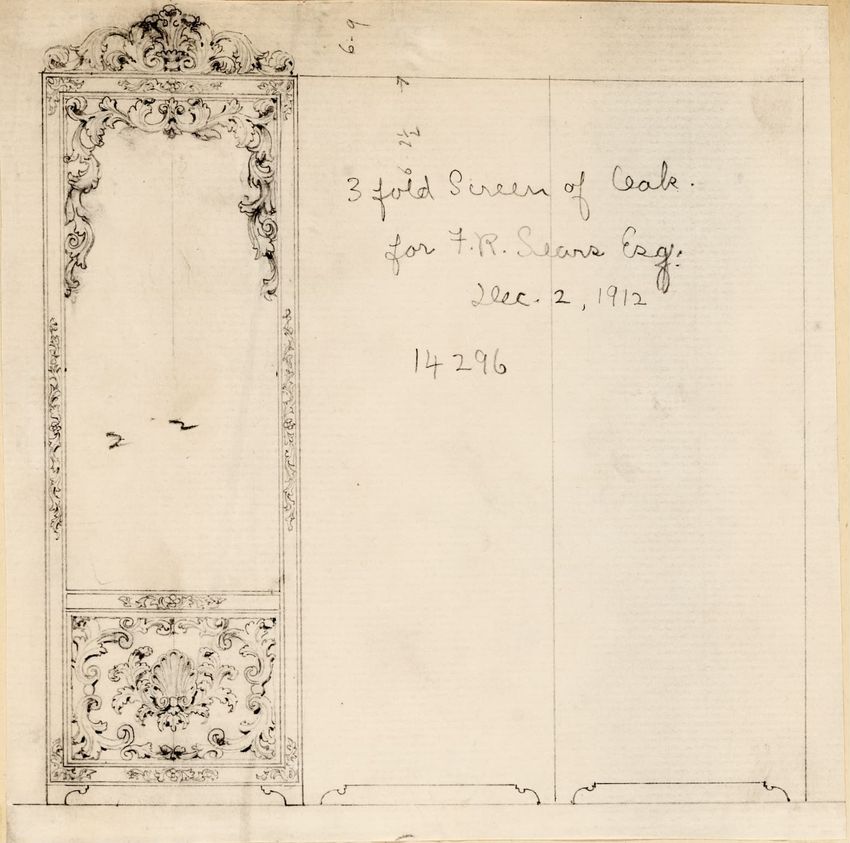 6-9
3 fold Screen of Oak.
for F. R. Sears Esq:
Dec. 2, 1912
14296
2 2